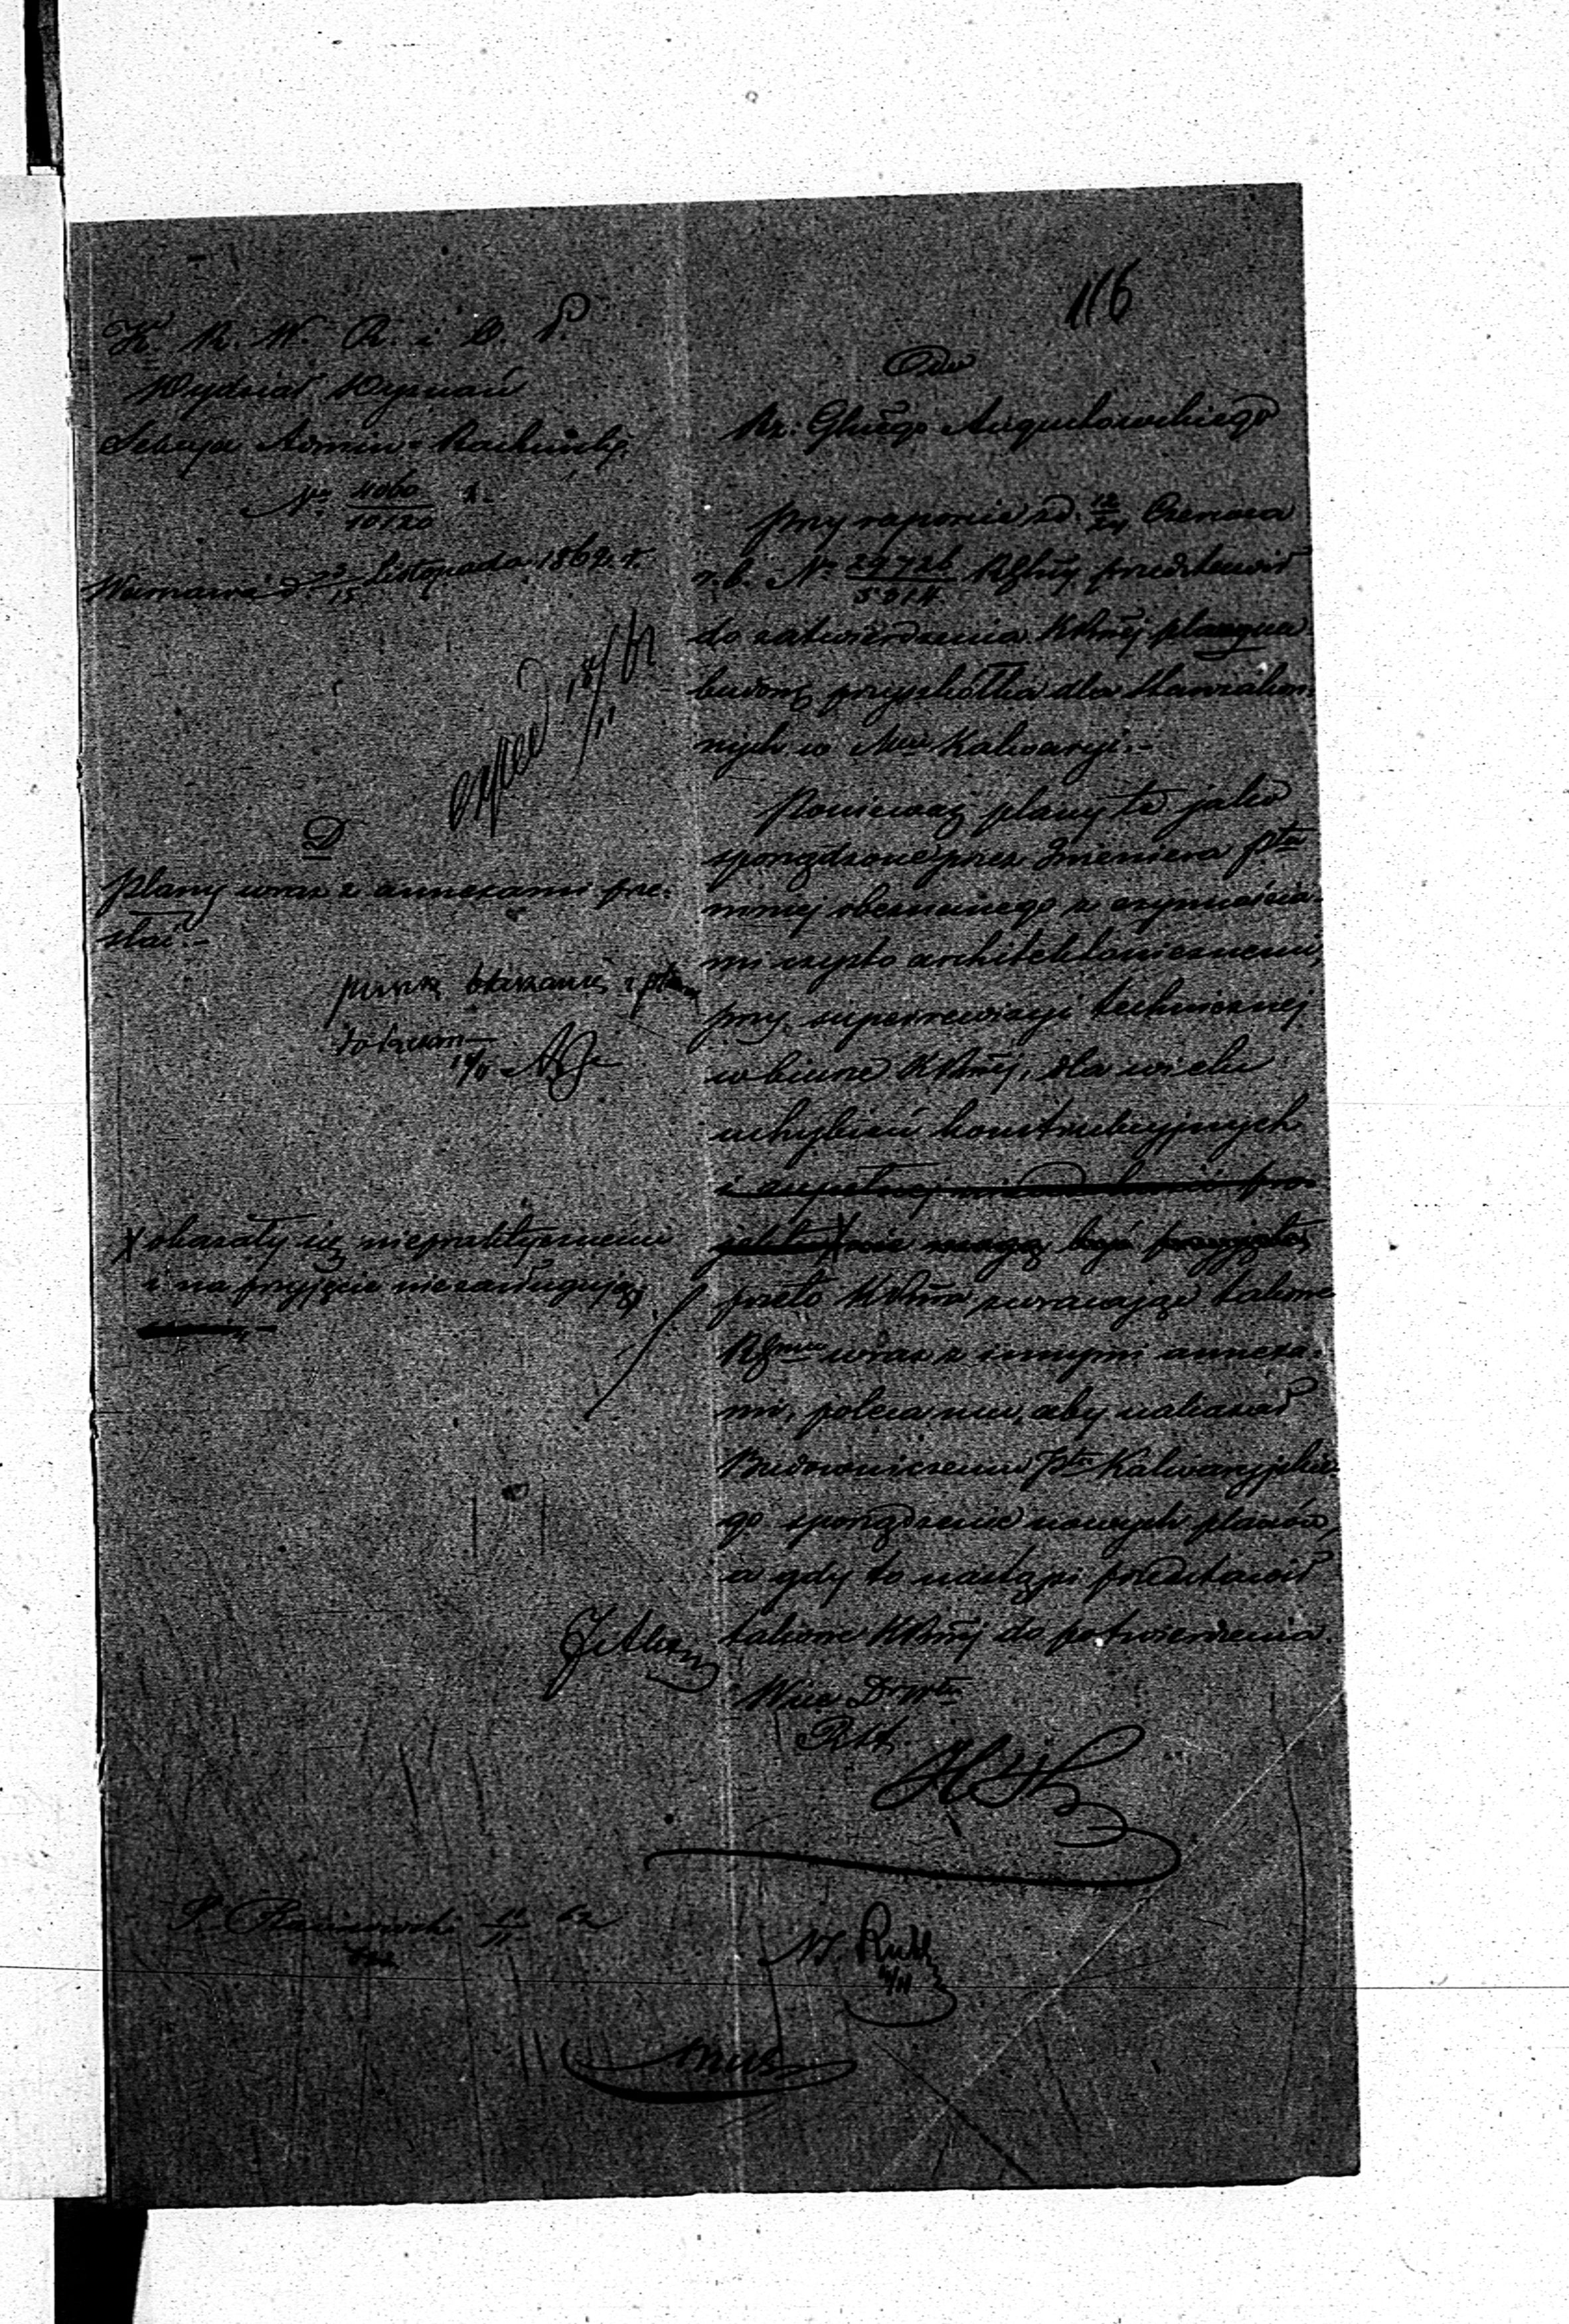 116
K. R. W. R. i O. P.
Wydział Wyznań
Sekcya Admin: Rachunk:
No 4060/10120
Warszawa d. 3/15 Listopada 1862 r.
exped 18/11 62
D
Plany wraz z annexami prze-
słać.-
puszkę blaszaną z
X okazały się niepraktycznemi
i na przyjęcie niezasługują,
Do
Rz: Głłgo Augustowskiego
Przy raporcie z d. 12/24 Czerwca
r. b. No 29726/5914 Rz Głłny przedstawił
do zatwierdzenia KRzndj plan na
budowę przyszkółka dla Starozakon-
nych w Mcie Kalwaryi.-
Ponieważ plany te jako
sporządzone przez Inżeniera Ptu
mniej obeznanego z czynnościa-
mi czysto architektonicznemi,
przy superrewizyi technicznej
w biurze KRznej, dla wielu
uchybień konstrukcyjnych
nie mogą być przyjęte
przeto KRzna zwracając takowe
Rzmu wraz z innymi annexa-
mi, poleca mu, aby nakazał
Budowniczemu Ptu Kalwaryjskie-
go sporządzenie nowych planów,
a gdy to nastąpi przedstawił
takowe KRznej do potwierdzenia.
Vice Drktr